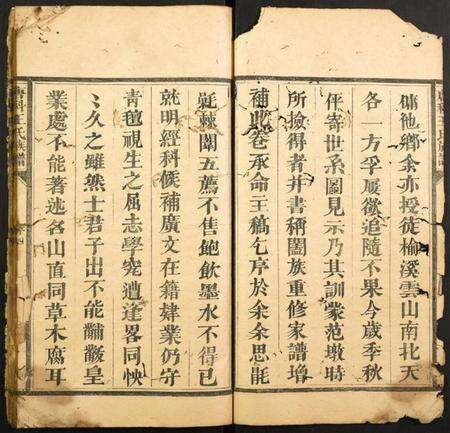 傭他鄉余亦授徒榆溪雲山南北天
各一方孚屢欲追隨不果今歲季秋
伻寄世系圖見示乃其訓蒙范墩時
所撿得者并書稱闔族重修家譜增
補此卷承命主稿乞序於余余思毷
氉棘闈五薦不售飽飲墨水不得已
就明經科候補廣文在籍肄業仍守
青氊視生之屈志學宛遭逢畧同怏
〻久之雖然士君子出不能黼黻皇
業處不能著述名山直同草木腐耳
科王氏族譜